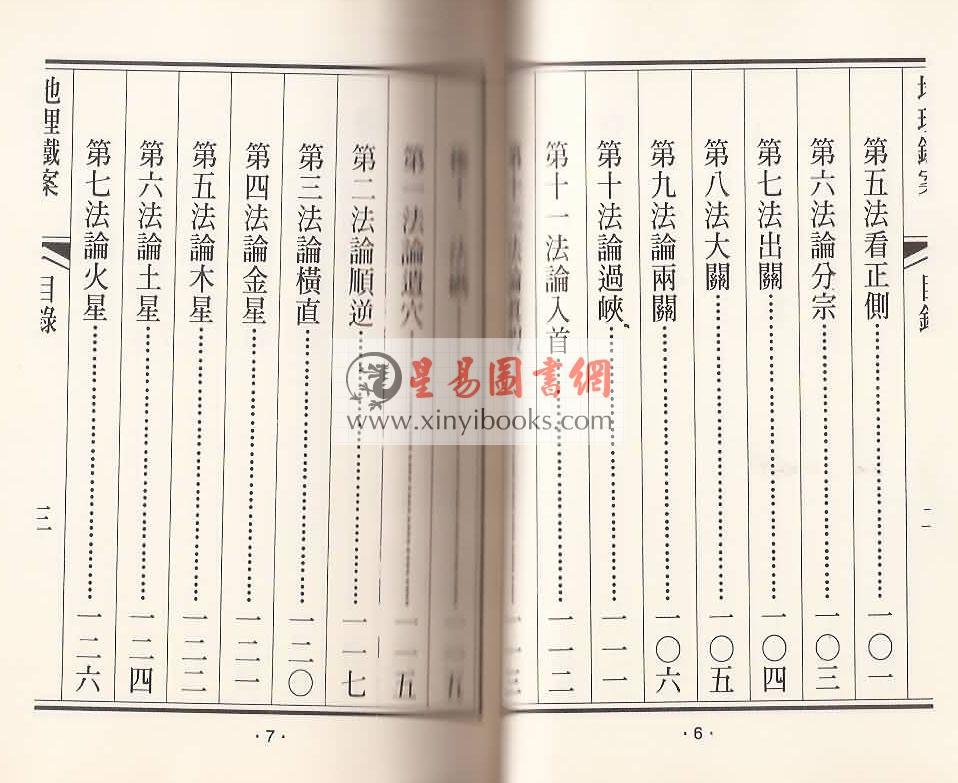 第五法看正側 一〇一
第六法論分宗 一〇三
第七法出關 一〇四
第八法大關 一〇五
第九法論兩關 一〇六
第十法論過峽 一一一
第十一法論入首 一一二
二
·6·
第一法論 穴 一一五
第二法論順逆 一一七
第三法論橫直 一二〇
第四法論金星 一二一
第五法論木星 一二二
第六法論土星 一二四
第七法論火星 一二六
地理鐵案
目錄
三
·7·
星易圖書網
www.xinyibooks.com